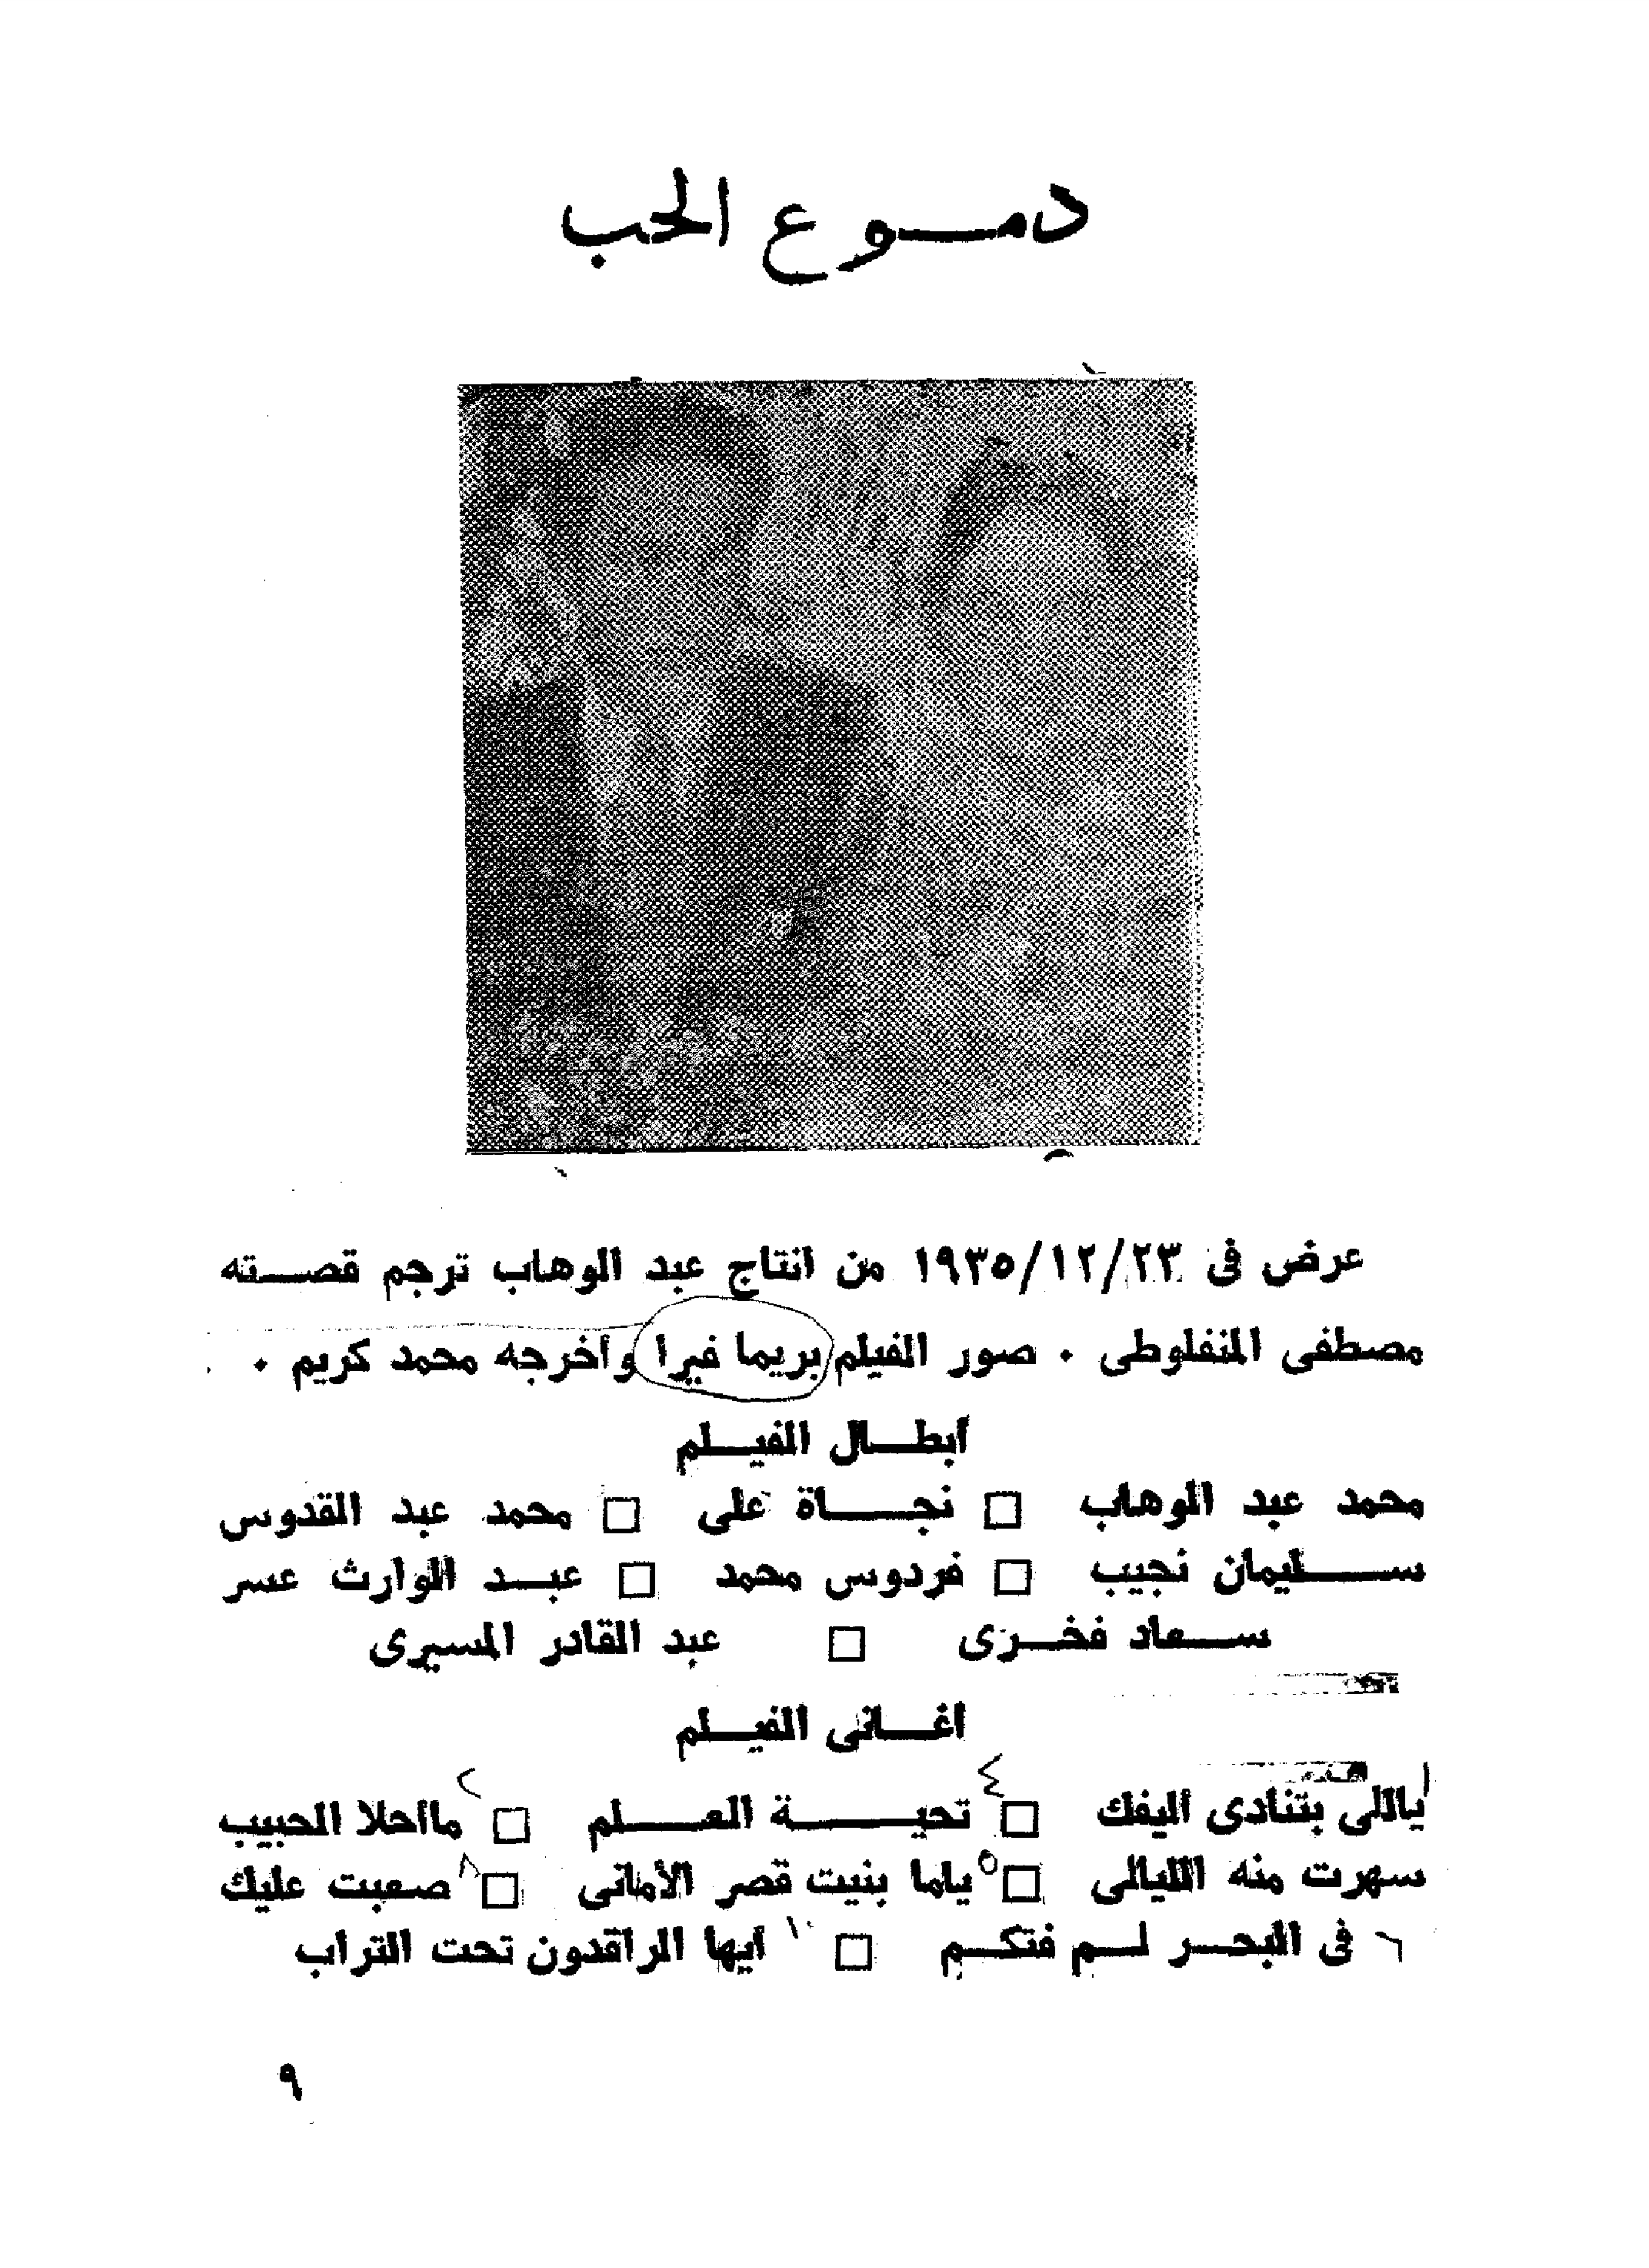 دمــوع الحب
عرض فى ١٩٣٥/١٢/٢٣ من انتاج عبد الوهاب ترجم قصــته
مصطفى المنفلوطى ٠ صور الفيلم بريما فيرا وأخرجه محمد كريم ٠
أبطــال الفيــلم
محمد عبد الوهاب □ نجــــاة على □ محمد عبد القدوس
ســـليمان نجيب □ فردوس محمد □ عبــد الوارث عسر
ســـعاد فخــرى □ عبد القادر المسيرى
أغــانى الفيــلم
١ ياللى بتنادى أليفك □ ٤ تحيـــــة العـــــلم □ ٢ مااحلا الحبيب
سهرت منه الليالى □ ٥ ياما بنيت قصر الأمانى □ ٨ صعبت عليك
٦ فى البحــر لــم فتكــم □ ١٠ أيها الراقدون تحت التراب
٩